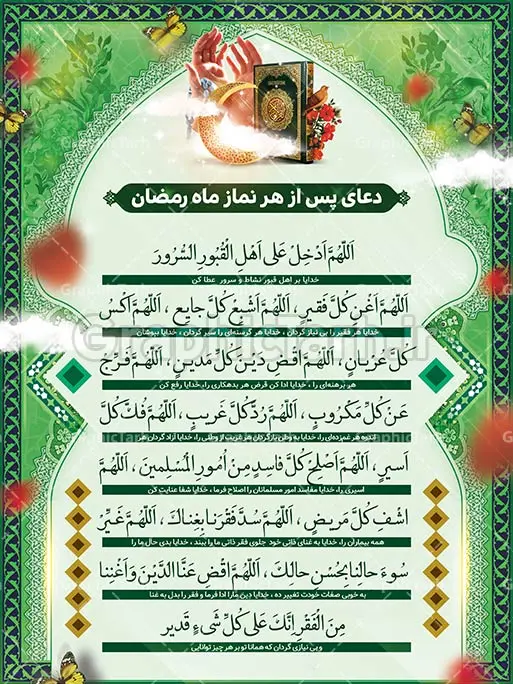 دعای پس از هر نماز ماه رمضان
اَللّٰهُمَّ اَدْخِلْ عَلى اَهْلِ الْقُبُورِ السُّرُورَ
خدایا بر اهل قبور نشاط و سرور عطا کن
اَللّٰهُمَّ اَغْنِ كُلَّ فَقيرٍ ، اَللّٰهُمَّ اَشْبِعْ كُلَّ جايِعٍ ، اَللّٰهُمَّ اكْسُ
خدایا هر فقیر را بی نیاز گردان ، خدایا هر گرسنه‌ای را سیر گردان ، خدایا بپوشان
كُلَّ عُرْيانٍ ، اَللّٰهُمَّ اقْضِ دَيْنَ كُلِّ مَدينٍ ، اَللّٰهُمَّ فَرِّجْ
هر برهنه‌ای را ، خدایا ادا کن قرض هر بدهکاری را، خدایا رفع کن
عَنْ كُلِّ مَكْرُوبٍ ، اَللّٰهُمَّ رُدَّ كُلَّ غَريبٍ ، اَللّٰهُمَّ فُكَّ كُلَّ
انده هر غمزده‌ای را، خدایا به وطن بازگردان هر غریب از وطنی را، خدایا آزاد گردان هر
اَسيرٍ ، اَللّٰهُمَّ اَصْلِحْ كُلَّ فاسِدٍ مِنْ اُمُورِ الْمُسْلِمينَ ، اَللّٰهُمَّ
اسیری را، خدایا مفاسد امور مسلمانان را اصلاح فرما ، خدایا شفا عنایت کن
اشْفِ كُلَّ مَريضٍ ، اَللّٰهُمَّ سُدَّ فَقْرَنا بِغِناكَ ، اَللّٰهُمَّ غَيِّرْ
همه بیماران را، خدایا به غنای ذاتی خود جلوی فقر ذاتی ما را ببند ، خدایا بدی حال ما را
سُوءَ حالِنا بِحُسْنِ حالِكَ ، اَللّٰهُمَّ اقْضِ عَنَّا الدَّيْنَ وَ اَغْنِنا
به خوبی صفات خودت تغییر ده ، خدایا دین ما را ادا فرما و فقر را بدل به غنا
مِنَ الْفَقْرِ اِنَّكَ عَلى كُلِّ شَىءٍ قَدير
و بی نیازی گردان که همانا تو بر هر چیز توانایی
GraphicTarh.ir